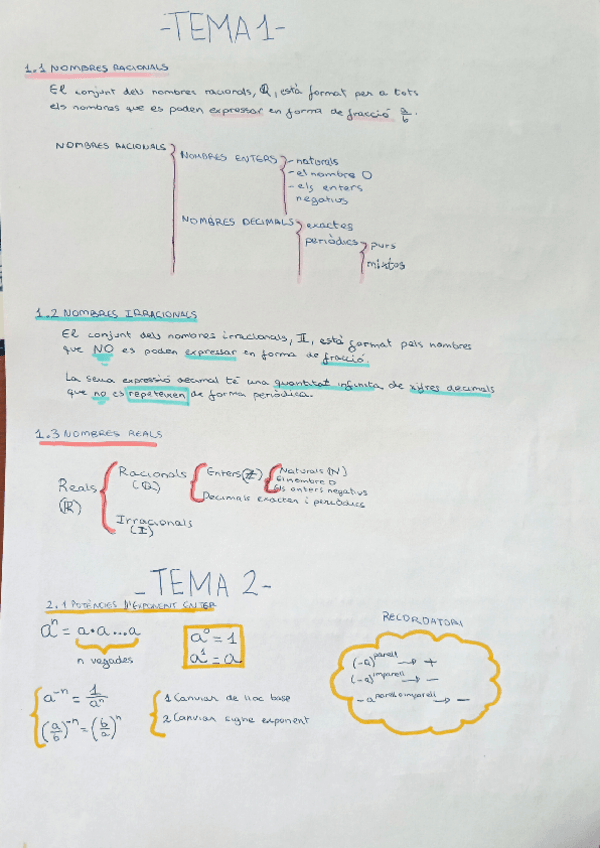 -TEMA 1-
1.1 NOMBRES RACIONALS
El conjunt dels nombres racionals, Q, està format per a tots
els nombres que es poden expressar en forma de fracció a/b.
NOMBRES RACIONALS
NOMBRES ENTERS
- naturals
- el nombre 0
- els enters
negatius
NOMBRES DECIMALS
exactes
periòdics
purs
mixtos
1.2 NOMBRES IRRACIONALS
El conjunt dels nombres irracionals, II, està format pels nombres
que NO es poden expressar en forma de fracció.
La seua expressió decimal té una quantitat infinita de xifres decimals
que no es repeteixen de forma periòdica.
1.3 NOMBRES REALS
Reals
(R)
Racionals
(Q)
Enters (Z)
Naturals (N)
El nombre 0
Els enters negatius
Decimals exactes i periòdics
Irracionals
(I)
- TEMA 2-
2.1 POTÈNCIES D'EXPONENT ENTER
aⁿ = a·a...a
n vegades
a⁰ = 1
a¹ = a
RECORDATORI
(-a)^parell → +
(-a)^imparell → -
-a^parell o imparell → -
a⁻ⁿ = 1/aⁿ
(a/b)⁻ⁿ = (b/a)ⁿ
1 Canviar de lloc base
2 Canviar signe exponent